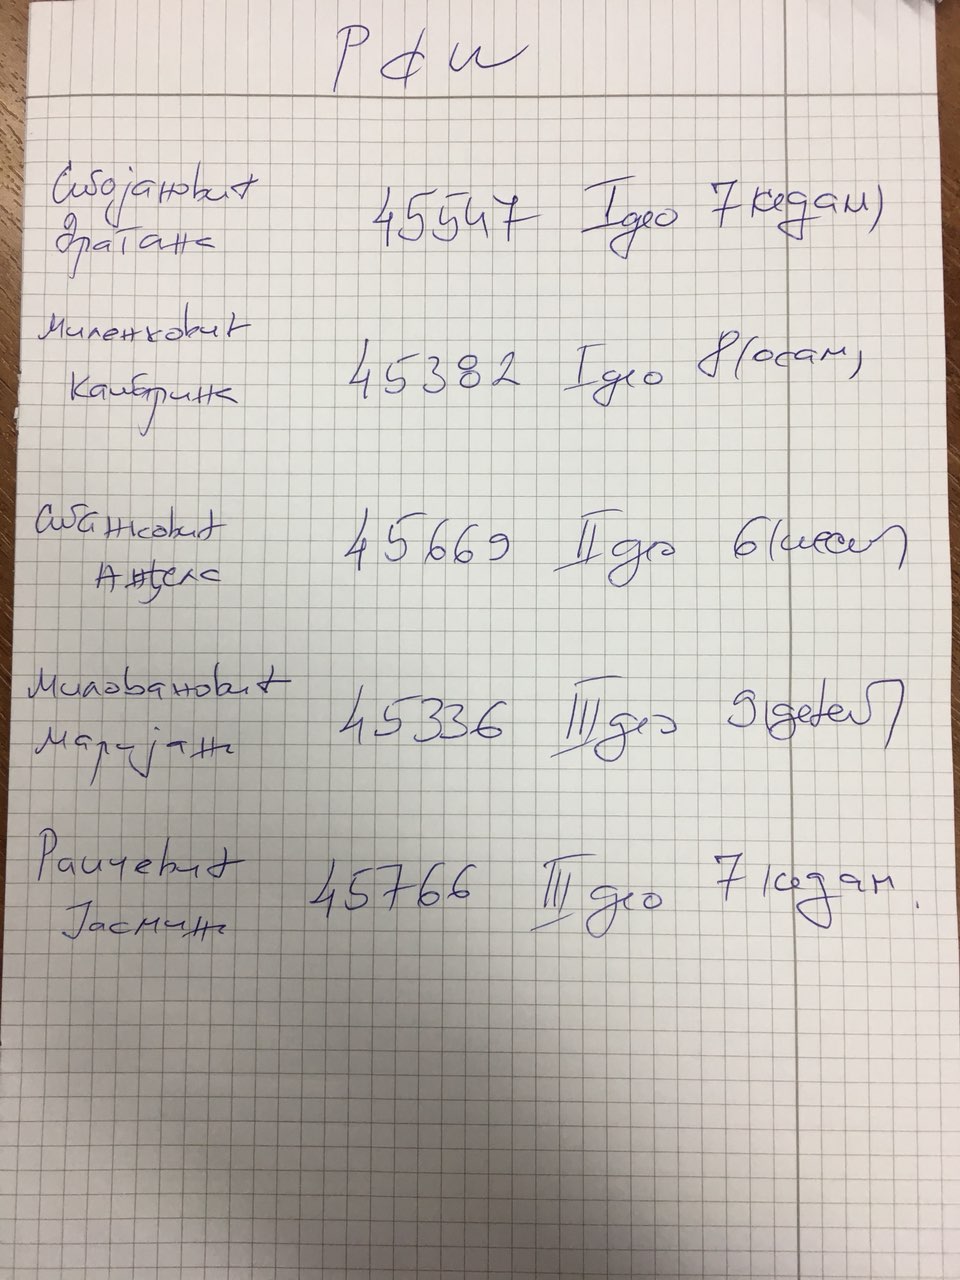 РФИ
Стојановић
Драгана 45547 I део 7(седам)
Миленковић
Катарина 45382 I део 8(осам)
Станковић
Анђела 45669 II део 6(шест)
Миловановић
Маријана 45336 III део 9(девет)
Раичевић
Јасмина 45766 III део 7(седам.